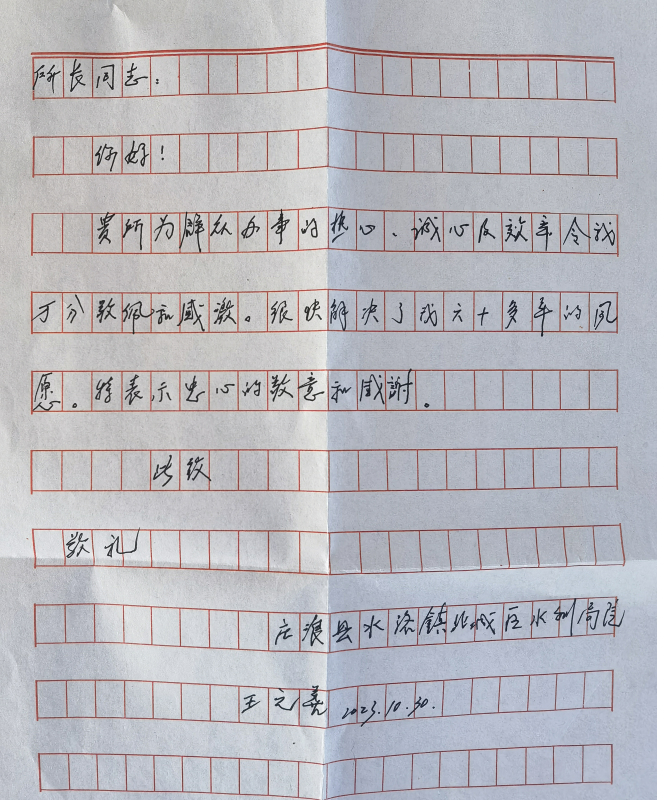 所长同志：
你好！
贵所为群众办事的热心、诚心及效率令我
万分敬佩和感激。很快解决了我六十多年的夙
愿。特表示忠心的敬意和感謝。
此致
敬礼
庄浪县水洛镇北城区水利局院
王元 2023.10.30.